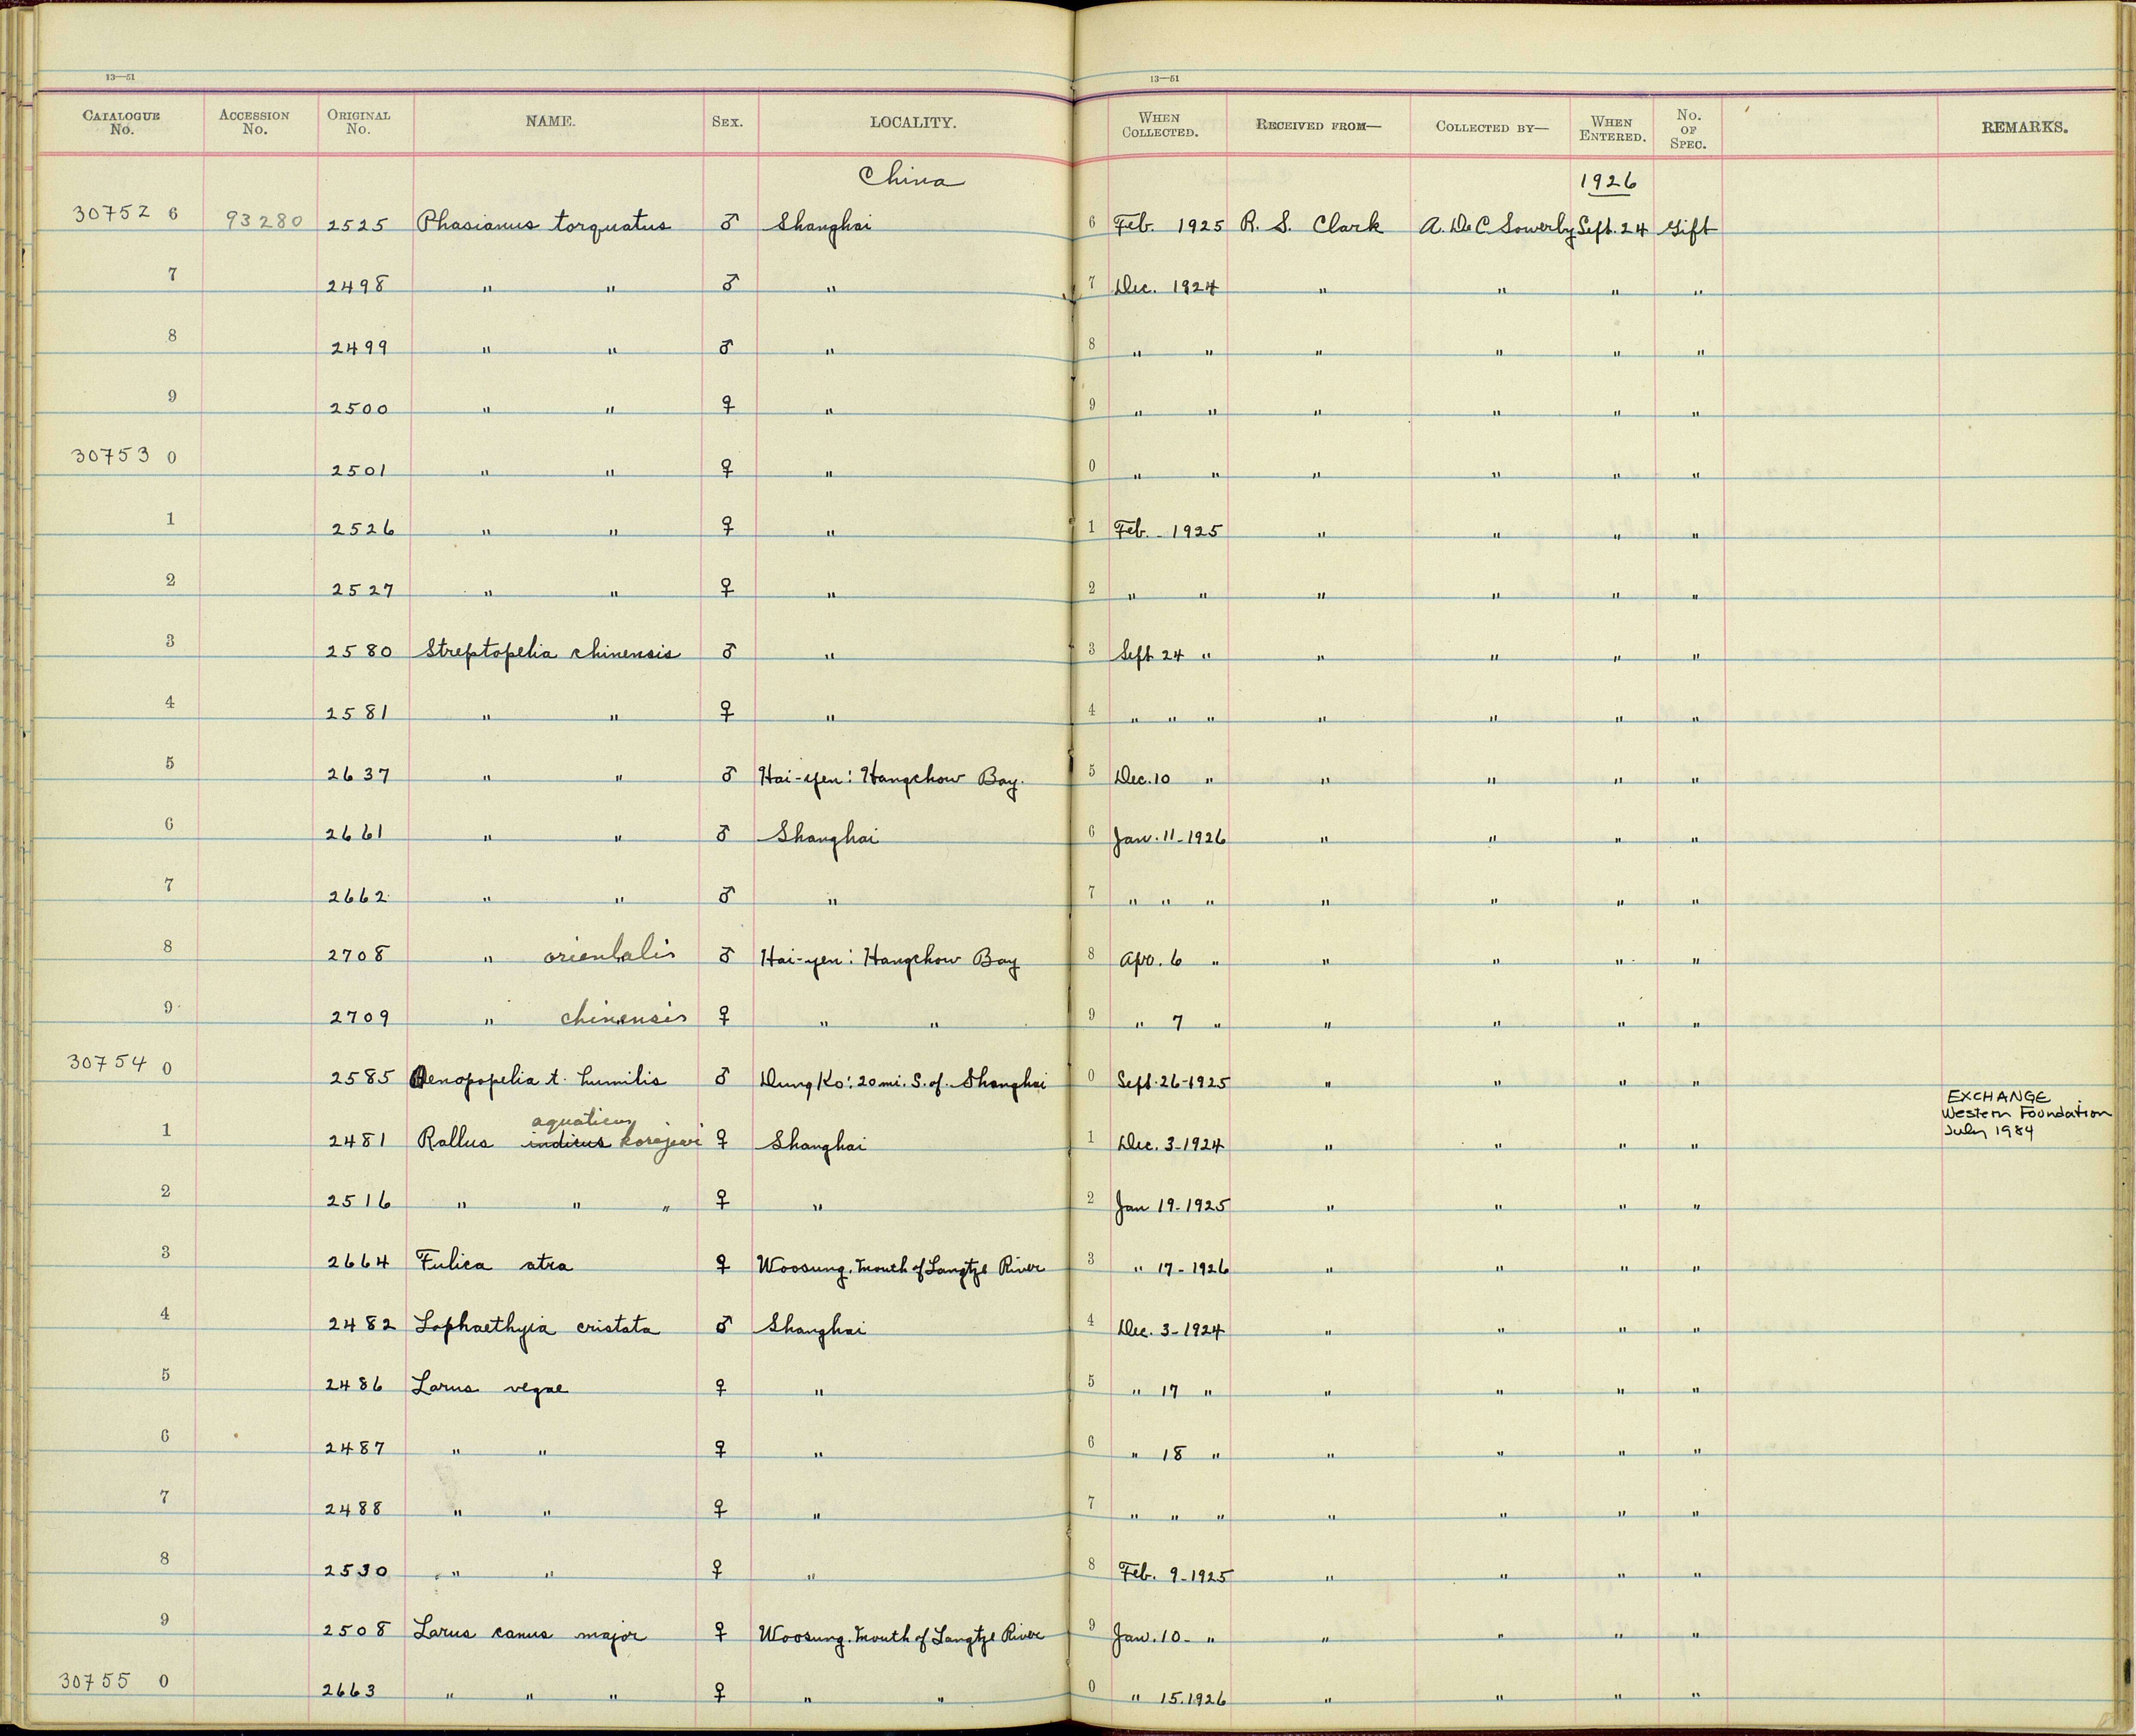 13—51 13—51
CATALOGUE No. ACCESSION No. ORIGINAL No. NAME. SEX. LOCALITY. WHEN COLLECTED. RECEIVED FROM— COLLECTED BY— WHEN ENTERED. No. OF SPEC. REMARKS.
China 1926
30752 6 93280 2525 Phasianus torquatus ♂ Shanghai 6 Feb. 1925 R. S. Clark A. De C. Sowerby Sept. 24 Gift
7 2498 " " ♂ " 7 Dec. 1924 " " " "
8 2499 " " ♂ " 8 " " " " " "
9 2500 " " ♀ " 9 " " " " " "
30753 0 2501 " " ♀ " 0 " " " " " "
1 2526 " " ♀ " 1 Feb. - 1925 " " " "
2 2527 " " ♀ " 2 " " " " " "
3 2580 Streptopelia chinensis ♂ " 3 Sept 24 " " " " "
4 2581 " " ♀ " 4 " " " " " " "
5 2637 " " ♂ Hai-yen: Hangchow Bay. 5 Dec. 10 " " " " "
6 2661 " " ♂ Shanghai 6 Jan. 11-1926 " " " "
7 2662 " " ♂ " 7 " " " " " " "
8 2708 " orientalis ♂ Hai-yen: Hangchow Bay 8 Apr. 6 " " " " "
9 2709 " chinensis ♀ " " 9 " 7 " " " " "
30754 0 2585 Oenopopelia t. humilis ♂ Dung Ko: 20 mi. S. of Shanghai 0 Sept. 26-1925 " " " "
EXCHANGE
Western Foundation
July 1984
aquaticus
1 2481 Rallus indicus korejewi ♀ Shanghai 1 Dec. 3-1924 " " " "
2 2516 " " " ♀ " 2 Jan 19-1925 " " " "
3 2664 Fulica atra ♀ Woosung. Mouth of Yangtze River 3 " 17-1926 " " " "
4 2482 Lophaethyia cristata ♂ Shanghai 4 Dec. 3-1924 " " " "
5 2486 Larus vegae ♀ " 5 " 17 " " " " "
6 2487 " " ♀ " 6 " 18 " " " " "
7 2488 " " ♀ " 7 " " " " " " "
8 2530 " " ♀ " 8 Feb. 9-1925 " " " "
9 2508 Larus canus major ♀ Woosung. Mouth of Yangtze River 9 Jan. 10- " " " " "
30755 0 2663 " " " ♀ " " 0 " 15.1926 " " " "